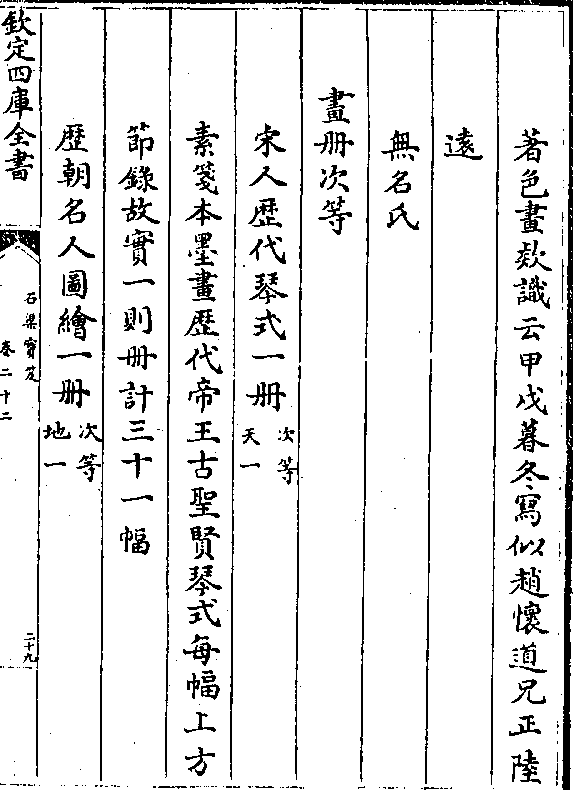 著色畫欵識云甲戌暮冬寫似趙懷道兄正陸
遠
無名氏
畫册次等
宋人歴代琴式一册 次等 天一
素箋本墨畫歴代帝王古聖賢琴式每幅上方
節錄故實一則册計三十一幅
歴朝名人圖繪一册 次等 地一
欽定四庫全書
石渠寳笈
卷二十二
二十九